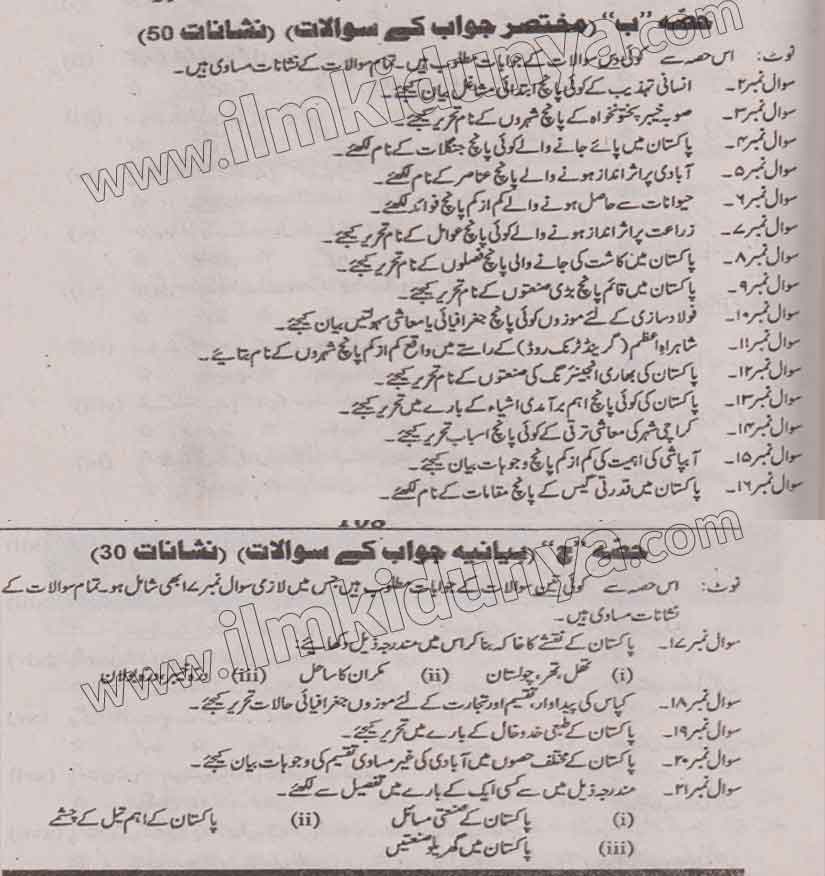 حصّہ "ب" (مختصر جواب کے سوالات) (نشانات 50)
نوٹ: اس حصہ سے کوئی دس سوالات کے جوابات مطلوب ہیں۔ تمام سوالات کے نشانات مساوی ہیں۔
سوال نمبر ۲۔ انسانی تہذیب کے کوئی پانچ ابتدائی مشاغل بیان کیجئے۔
سوال نمبر ۳۔ صوبہ خیبر پختونخواہ کے پانچ شہروں کے نام تحریر کیجئے۔
سوال نمبر ۴۔ پاکستان میں پائے جانے والے کوئی پانچ جنگلات کے نام لکھئے۔
سوال نمبر ۵۔ آبادی پر اثر انداز ہونے والے پانچ عناصر کے نام لکھئے۔
سوال نمبر ۶۔ حیوانات سے حاصل ہونے والے کم از کم پانچ فوائد لکھئے۔
سوال نمبر ۷۔ زراعت پر اثر انداز ہونے والے کوئی پانچ عوامل کے نام تحریر کیجئے۔
سوال نمبر ۸۔ پاکستان میں کاشت کی جانے والی پانچ فصلوں کے نام تحریر کیجئے۔
سوال نمبر ۹۔ پاکستان میں قائم پانچ بڑی صنعتوں کے نام تحریر کیجئے۔
سوال نمبر ۱۰۔ فولاد سازی کے لئے موزوں کوئی پانچ جغرافیائی یا معاشی سہولتیں بیان کیجئے۔
سوال نمبر ۱۱۔ شاہراہِ اعظم (گرینڈ ٹرنک روڈ) کے راستے میں واقع کم از کم پانچ شہروں کے نام بتائیے۔
سوال نمبر ۱۲۔ پاکستان کی بھاری انجینئرنگ کی صنعتوں کے نام تحریر کیجئے۔
سوال نمبر ۱۳۔ پاکستان کی کوئی پانچ اہم برآمدی اشیاء کے بارے میں تحریر کیجئے۔
سوال نمبر ۱۴۔ کراچی شہر کی معاشی ترقی کے کوئی پانچ اسباب تحریر کیجئے۔
سوال نمبر ۱۵۔ آبپاشی کی اہمیت کی کم از کم پانچ وجوہات بیان کیجئے۔
سوال نمبر ۱۶۔ پاکستان میں قدرتی گیس کے پانچ مقامات کے نام لکھئے۔
حصّہ "ج" (بیانیہ جواب کے سوالات) (نشانات 30)
نوٹ: اس حصہ سے کوئی تین سوالات کے جوابات مطلوب ہیں جس میں لازمی سوال نمبر ۱۷ بھی شامل ہو۔ تمام سوالات کے
نشانات مساوی ہیں۔
سوال نمبر ۱۷۔ پاکستان کے نقشے کا خاکہ بنا کر اس میں مندرجہ ذیل دکھائیے:
(i) تھل، تھر، چولستان (ii) مکران کا ساحل (iii) درہ خیبر اور بولان
سوال نمبر ۱۸۔ کپاس کی پیداوار، تقسیم اور تجارت کے لئے موزوں جغرافیائی حالات تحریر کیجئے۔
سوال نمبر ۱۹۔ پاکستان کے طبعی خدوخال کے بارے میں تحریر کیجئے۔
سوال نمبر ۲۰۔ پاکستان کے مختلف حصوں میں آبادی کی غیر مساوی تقسیم کی وجوہات بیان کیجئے۔
سوال نمبر ۲۱۔ مندرجہ ذیل میں سے کسی ایک کے بارے میں تفصیل سے لکھئے۔
(i) پاکستان کے صنعتی مسائل (ii) پاکستان کے اہم تیل کے چشمے
(iii) پاکستان میں گھریلو صنعتیں
www.ilmkidunya.com
www.ilmkidunya.com